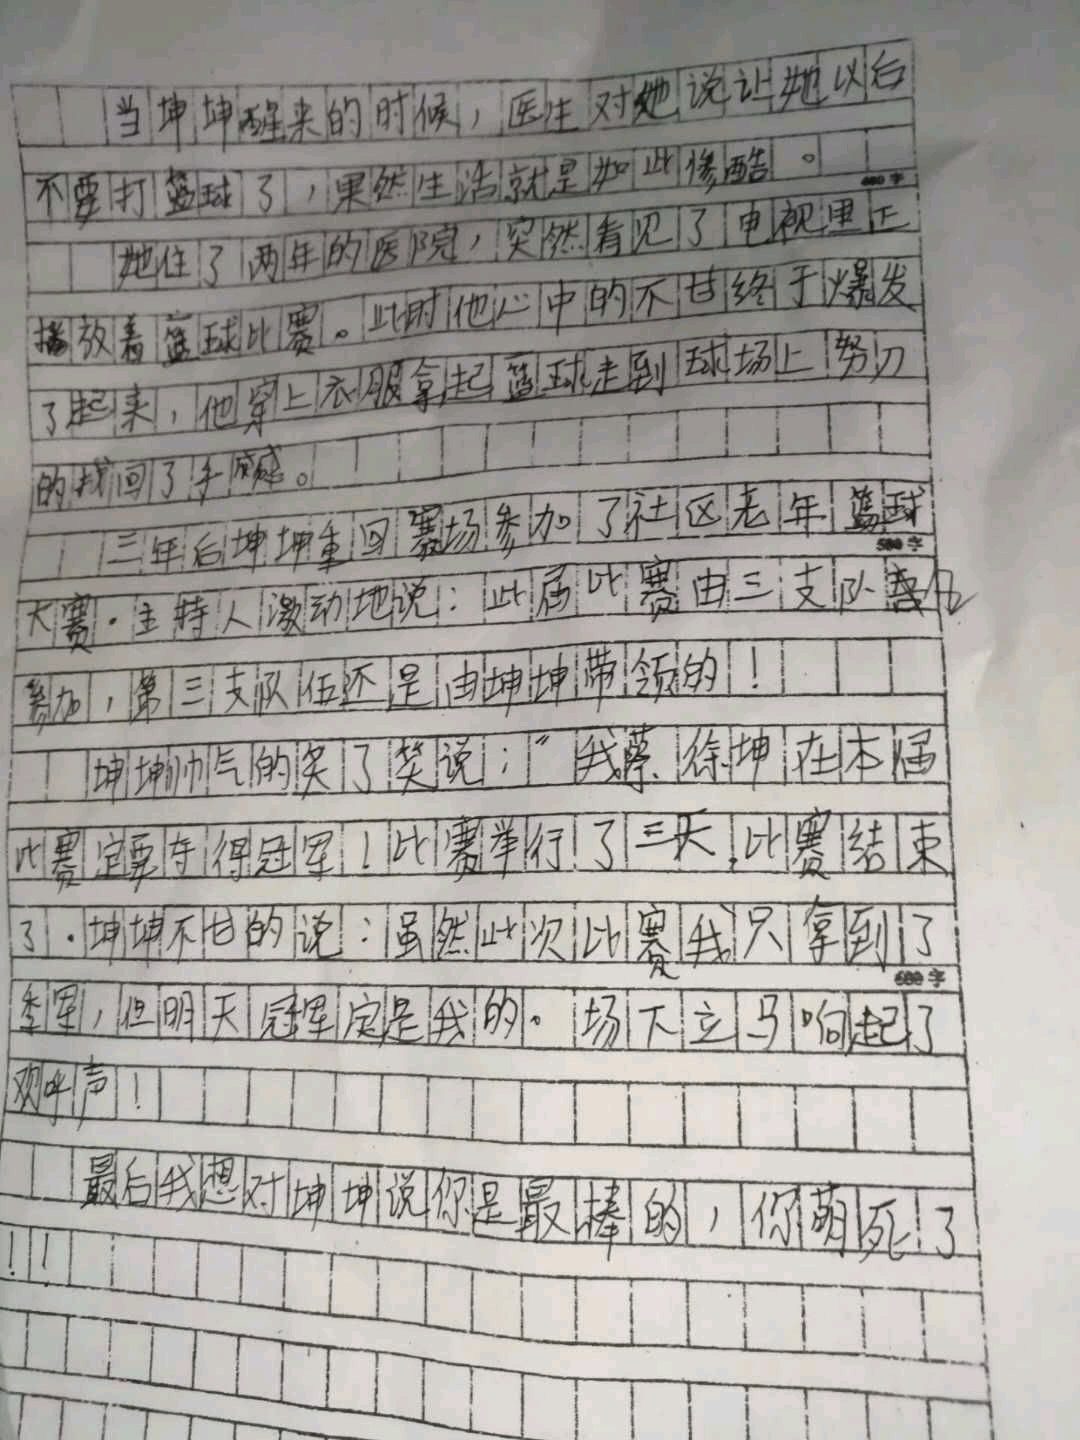 当坤坤醒来的时候，医生对她说让她以后
不要打篮球了，果然生活就是如此惨酷。
400字
她住了两年的医院，突然看见了电视里正
播放着篮球比赛。此时他心中的不甘终于爆发
了起来，他穿上衣服拿起篮球走到球场上努力
的找回了手感。
三年后坤坤重回赛场参加了社区老年篮球
500字
大赛.主持人激动地说：此届比赛由三支队伍
参加，第三支队伍还是由坤坤带领的！
坤坤帅气的笑了笑说：“我蔡徐坤在本届
比赛定要夺得冠军！比赛举行了三天.比赛结束
了.坤坤不甘的说：虽然此次比赛我只拿到了
600字
季军，但明天冠军定是我的。场下立马响起了
欢呼声！
最后我想对坤坤说你是最棒的，你萌死了
！！